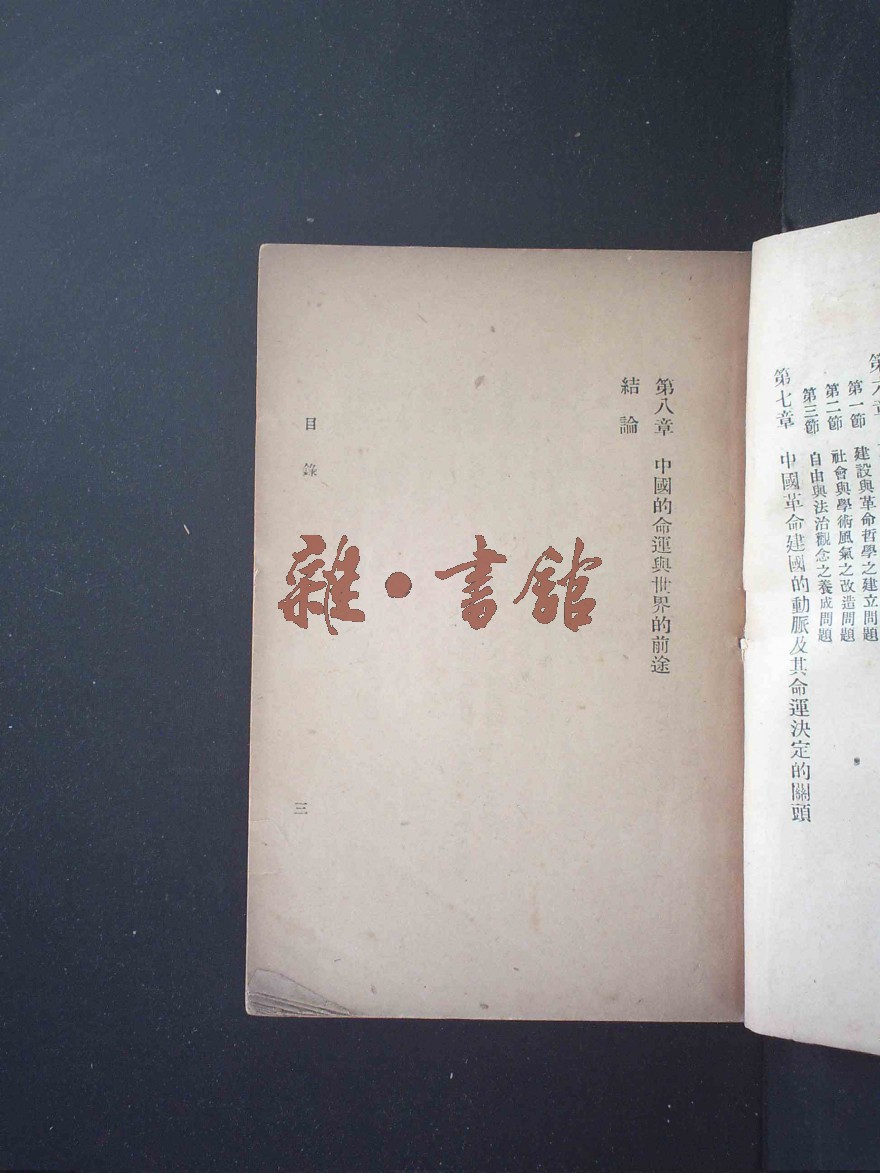 第六章
第一節　建設與革命哲學之建立問題
第二節　社會與學術風氣之改造問題
第三節　自由與法治觀念之養成問題
第七章　中國革命建國的動脈及其命運決定的關頭
第八章　中國的命運與世界的前途
結論
目錄
三
雜·書館